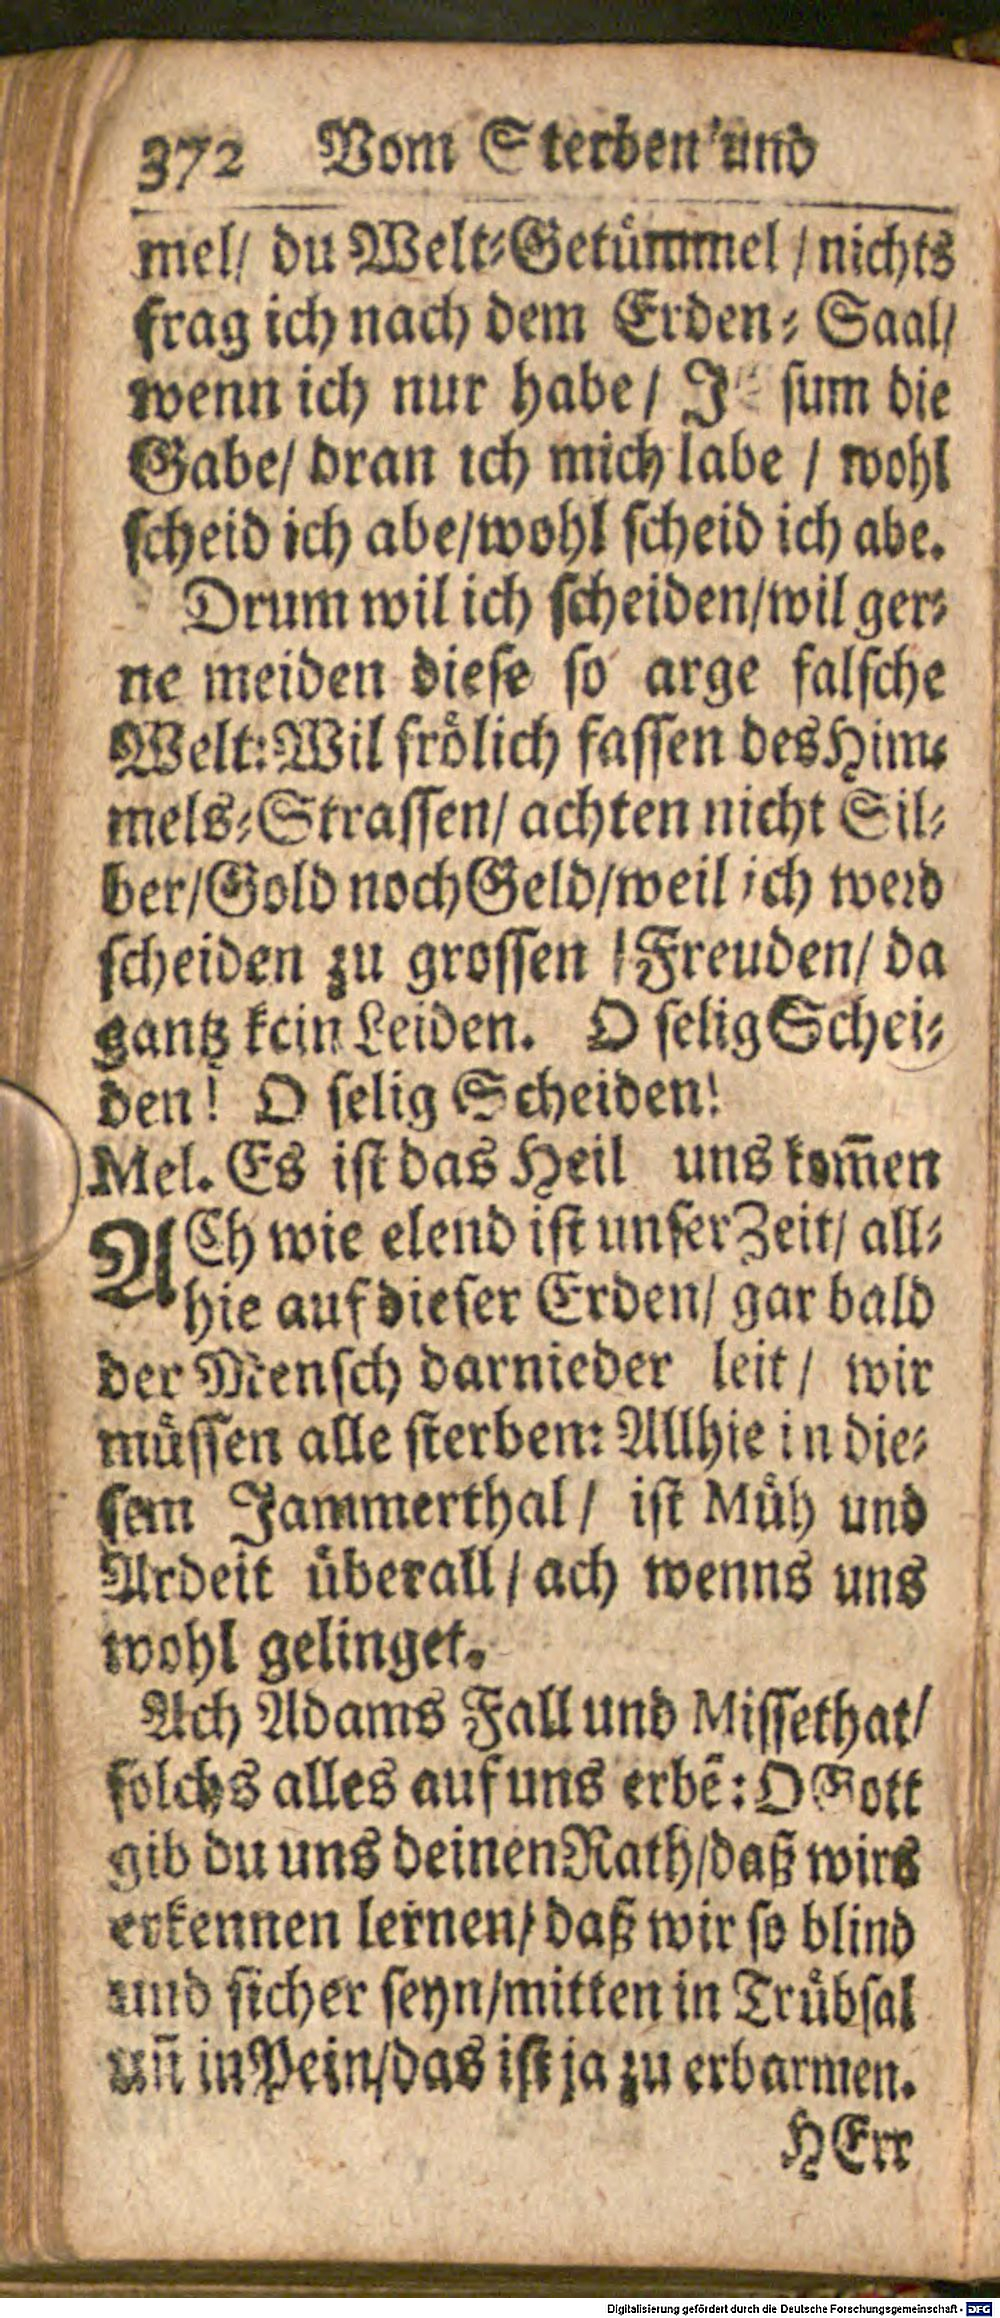 372 Vom Sterben und
mel/ du Welt-Getümmel / nichts
frag ich nach dem Erden-Saal/
wenn ich nur habe/ sum die
Gabe/ dran ich mich labe / wohl
scheid ich abe/wohl scheid ich abe.
Drum wil ich scheiden/wil ger-
ne meiden diese so arge falsche
Welt: Wil frölich fassen des Him-
mels-Strassen/ achten nicht Sil-
ber/Gold noch Geld/weil ich werd
scheiden zu grossen / Freuden/ da
gantz kein Leiden. O selig Schei-
den! O selig Scheiden!
Mel. Es ist das Heil uns kom̅en
ACh wie elend ist unser Zeit/ all-
hie auf dieser Erden/ gar bald
der Mensch darnieder leit/ wir
müssen alle sterben: Allhie in die-
sem Jammerthal/ ist Müh und
Ardeit überall/ ach wenns uns
wohl gelinget.
Ach Adams Fall und Missethat/
solchs alles auf uns erbē: O Gott
gib du uns deinen Rath/daß wirs
erkennen lernen/ daß wir so blind
und sicher seyn/mitten in Trübsal
un̅ in Pein/das ist ja zu erbarmen.
HErr
Digitalisierung gefördert durch die Deutsche Forschungsgemeinschaft - DFG